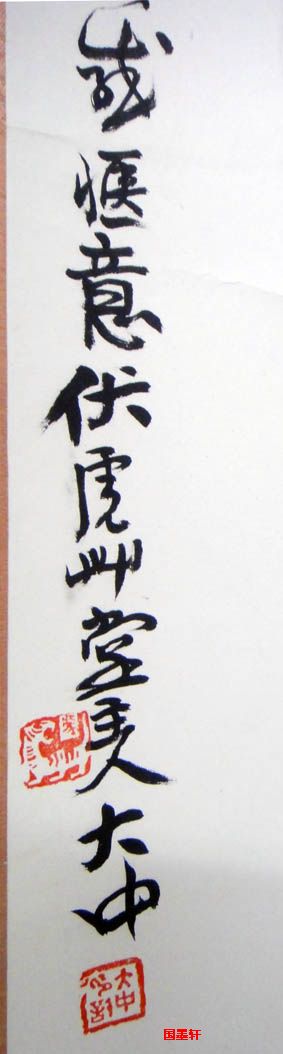 惬意伏虎艸堂主人大中
大中
国墨轩